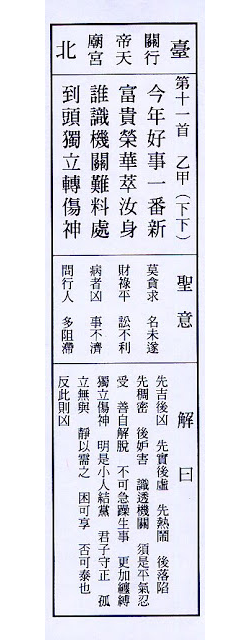 臺 關帝廟 北
行天宮
第十一首 乙甲(下下)
今年好事一番新
富貴榮華萃汝身
誰識機關難料處
到頭獨立轉傷神
聖意
莫貪求 名未遂
財祿平 訟不利
病者凶 事不濟
問行人 多阻滯
解曰
先吉後凶 先實後虛 先熱鬧 後落陷
先稠密 後妒害 識透機關 須是平氣忍
受 善自解脫 不可急躁生事 更加纏縛
獨立傷神 明是小人結黨 君子守正 孤
立無與 靜以需之 困可享 否可泰也
反此則凶